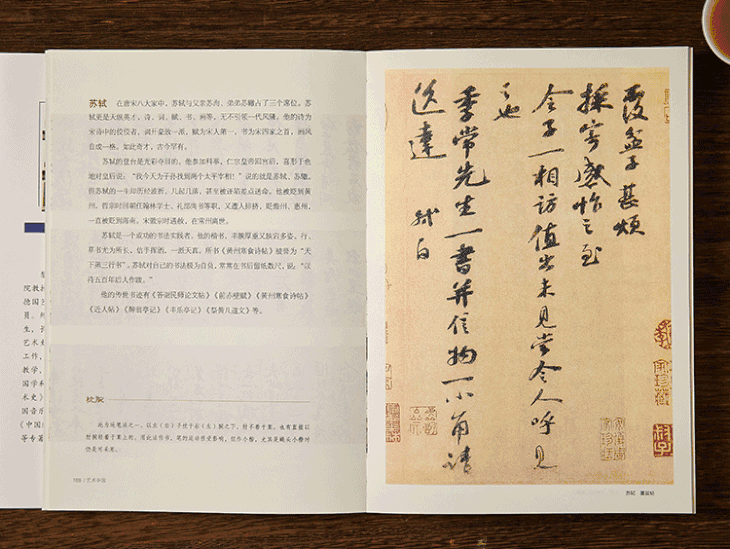 苏轼 在唐宋八大家中,苏轼与父亲苏洵、弟弟苏辙占了三个席位。苏
轼更是天纵英才,诗、词、赋、书、画等,无不引领一代风骚。他的诗为
宋诗中的佼佼者,词开豪放一派,赋为宋人第一,书为宋四家之首,画风
自成一格。如此奇才,古今罕有。
苏轼的登台是光彩夺目的。他参加科举,仁宗皇帝回宫后,喜形于色
地对皇后说:“我今天为子孙找到两个太平宰相!”说的就是苏轼、苏辙。
但苏轼的一生却历经波折,几起几落,甚至被诬陷差点送命。他被贬到黄
州,哲宗时回朝任翰林学士、礼部尚书等职,又遭人排挤,贬儋州、惠州,
一直被贬到海南。宋徽宗时遇赦,在常州离世。
苏轼是一个成功的书法实践者。他的楷书,丰腴厚重又妩媚多姿,行、
草书尤为所长,信手挥洒,一派天真。所书《黄州寒食诗帖》被誉为“天
下第三行书”。苏轼对自己的书法极为自负,常常在书后留纸数尺,说:“以
待五百年后人作跋。”
他的传世书迹有《答谢民师论文帖》《前赤壁赋》《黄州寒食诗帖》
《近人帖》《醉翁亭记》《丰乐亭记》《祭黄几道文》等。
枕腕
108 / 艺术中国
院教授
德国
员。
生,
艺术史
工作,
教学,
国学
术史》
国音乐
《中国
等专著
覆盆子甚烦
采寄感怍之至
令子一相访值出未见当令人呼见
之也
季常先生一书并信物一小角请
送达 轼白
苏轼 覆盆帖